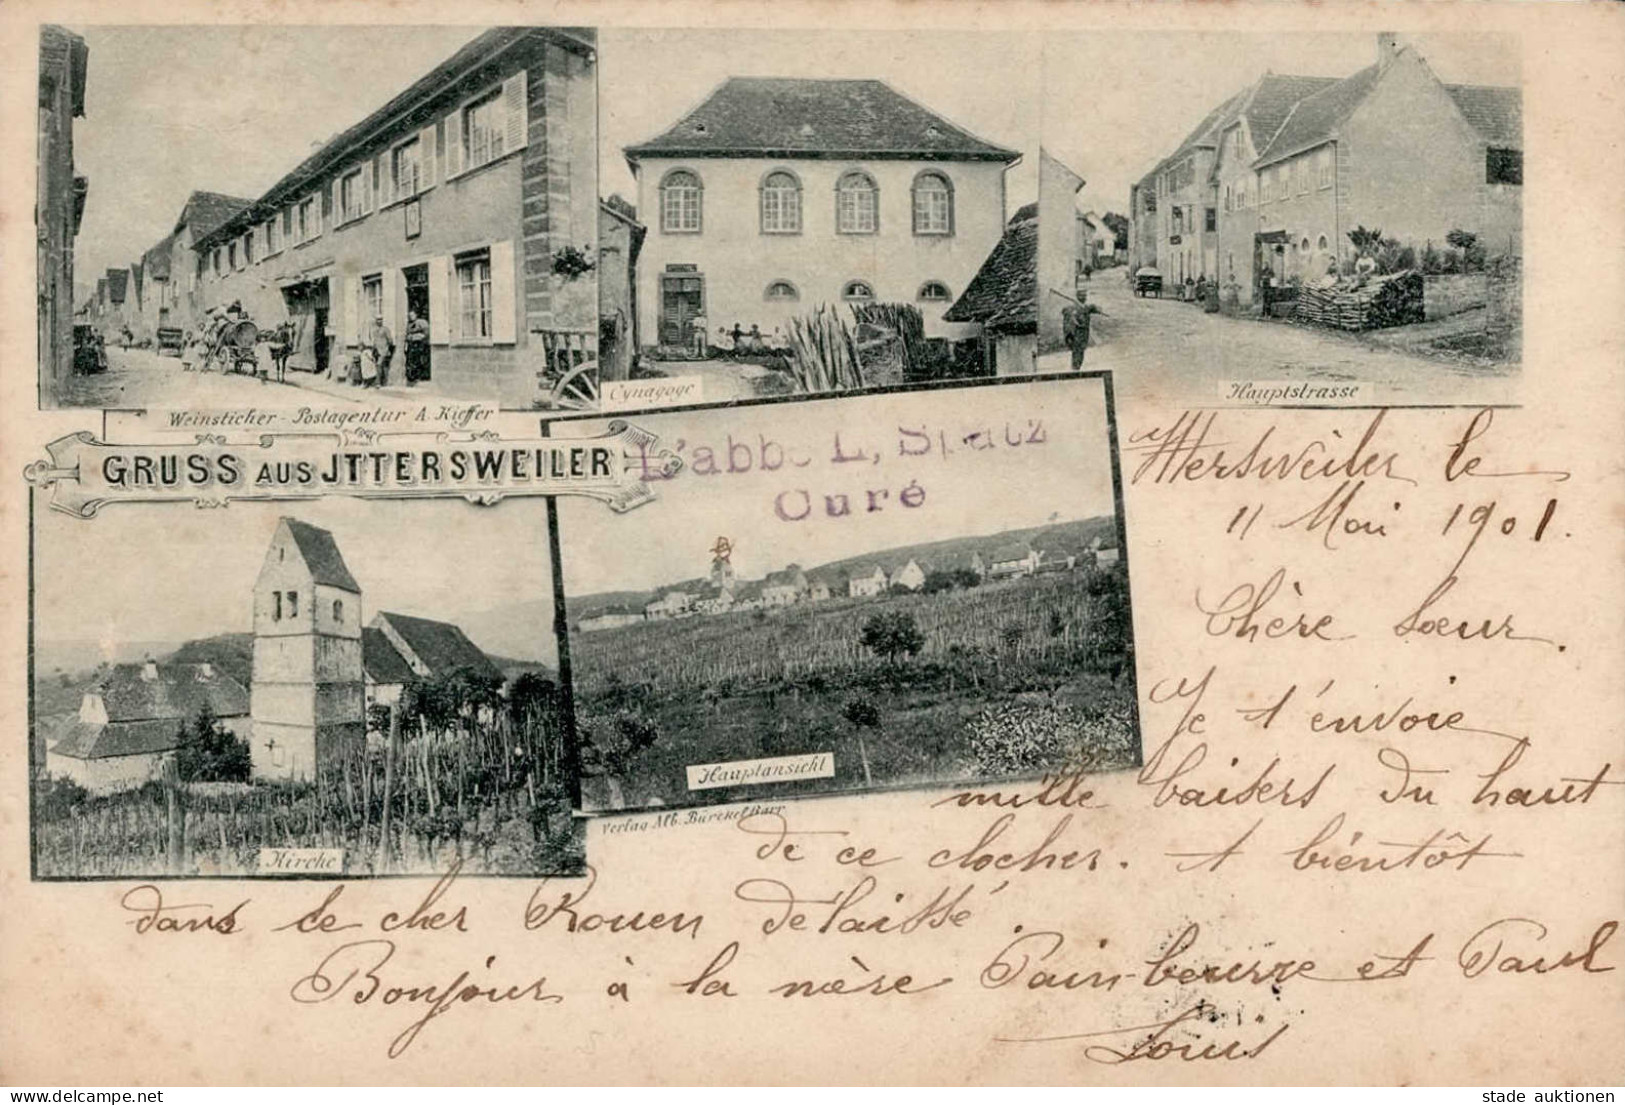 Weinsticher - Postagentur A. Kieffer
Cynagoge
Hauptstrasse
GRUSS AUS JTTERSWEILER
L'abbé L. Spatz
Curé
Kirche
Hauptansicht
Verlag Alb. Bürckel Barr
Ittersweiler le
11 Mai 1901.
Chère Sœur.
Je t'envoie
mille baisers du haut
de ce clocher. A bientôt
dans le cher Rouen délaissé.
Bonjour à la mère Pain-beurre et Paul
Louis
delcampe.net
stade auktionen